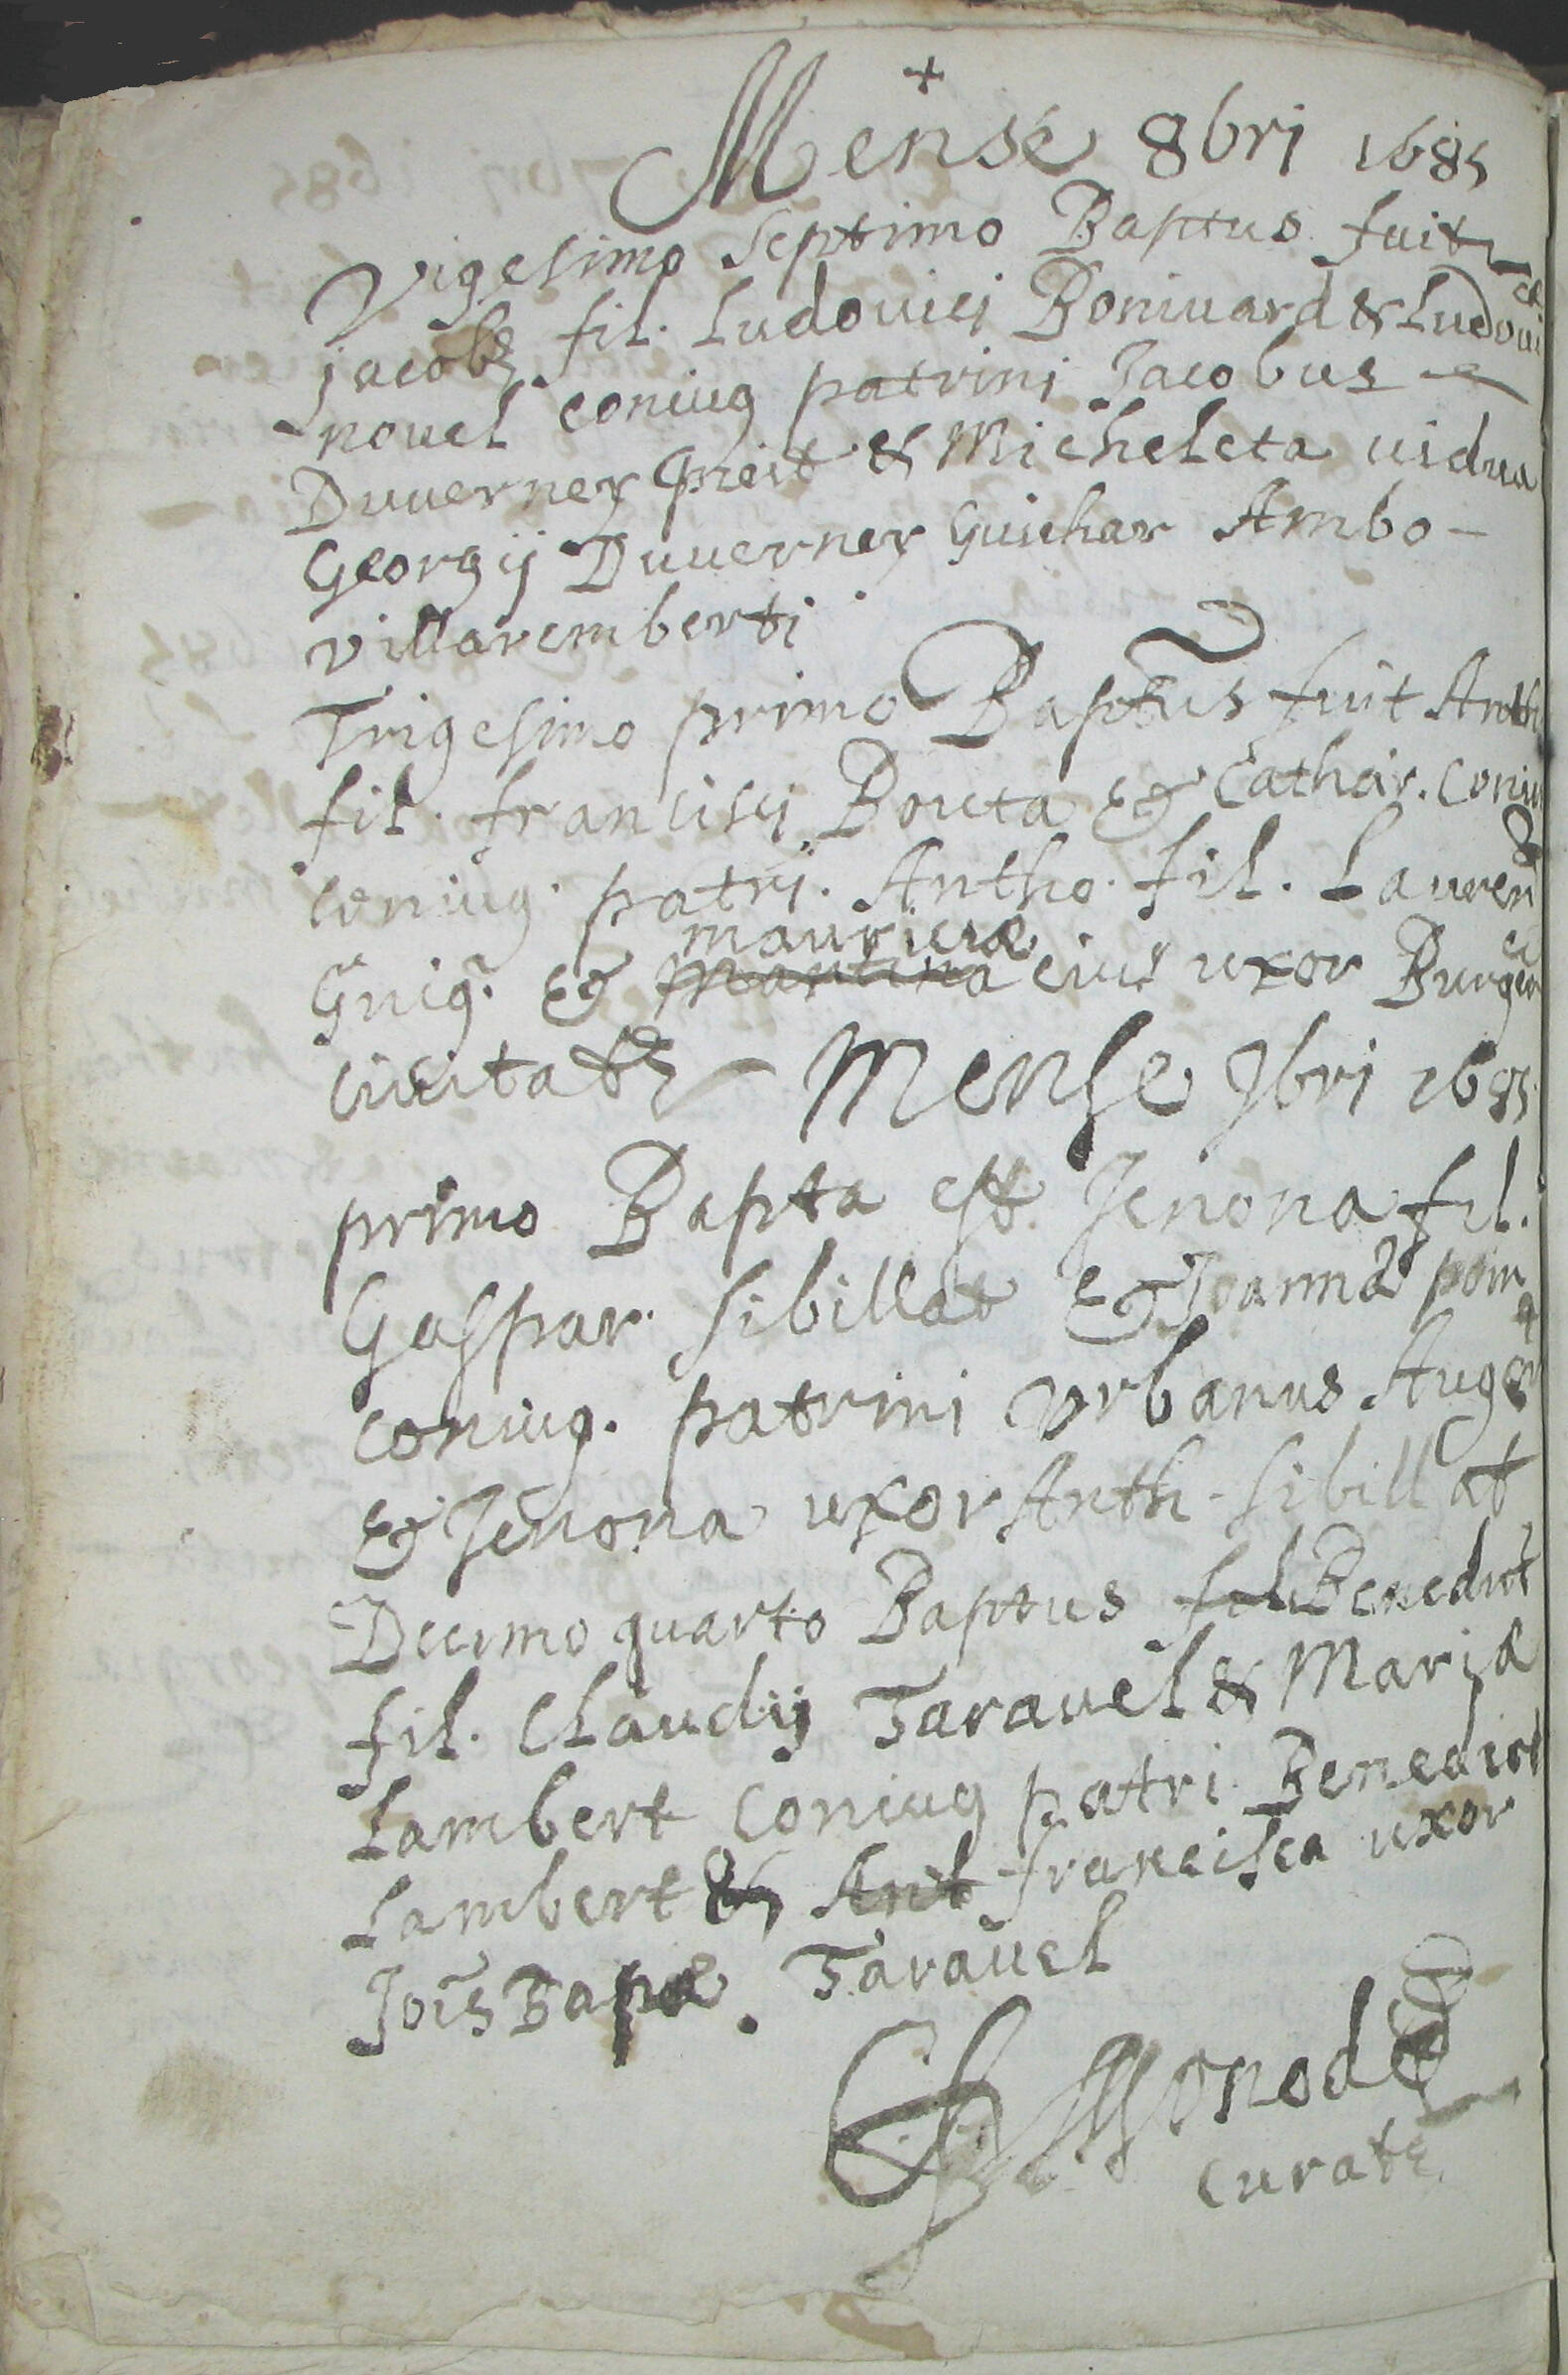 +
Mense 8bri 1685
Vigesimo septimo Baptus fuit
jacobz fil. Ludovici Boniuard & Ludouicæ
nouel coniug patrini Jacobus
Duuerney & Micheleta uidua
Georgij Duuerney Guichar Ambo-
villaremberti
Trigesimo primo Baptus fuit Anth
fil. francisci Boueta & Cathar. Coniu
coniug. patri. Antho. fil. Lauren
& mauricia martina eius uxor Burgen
ciuitatz Mense 9bri 1685
primo Bapta est Jenona fil.
Gaspar. sibillat & Joanna pom
coniug. patrini vrbanus Auger
& Jenona uxor Anth. sibillat
Decimo quarto Baptus fil Benedict
fil. Claudij Tarauel & Maria
Lambert Coniug patri. Benedict
Lambert & Ant francisca uxor
Jois Bapæ. Tarauel
Monod
curatz